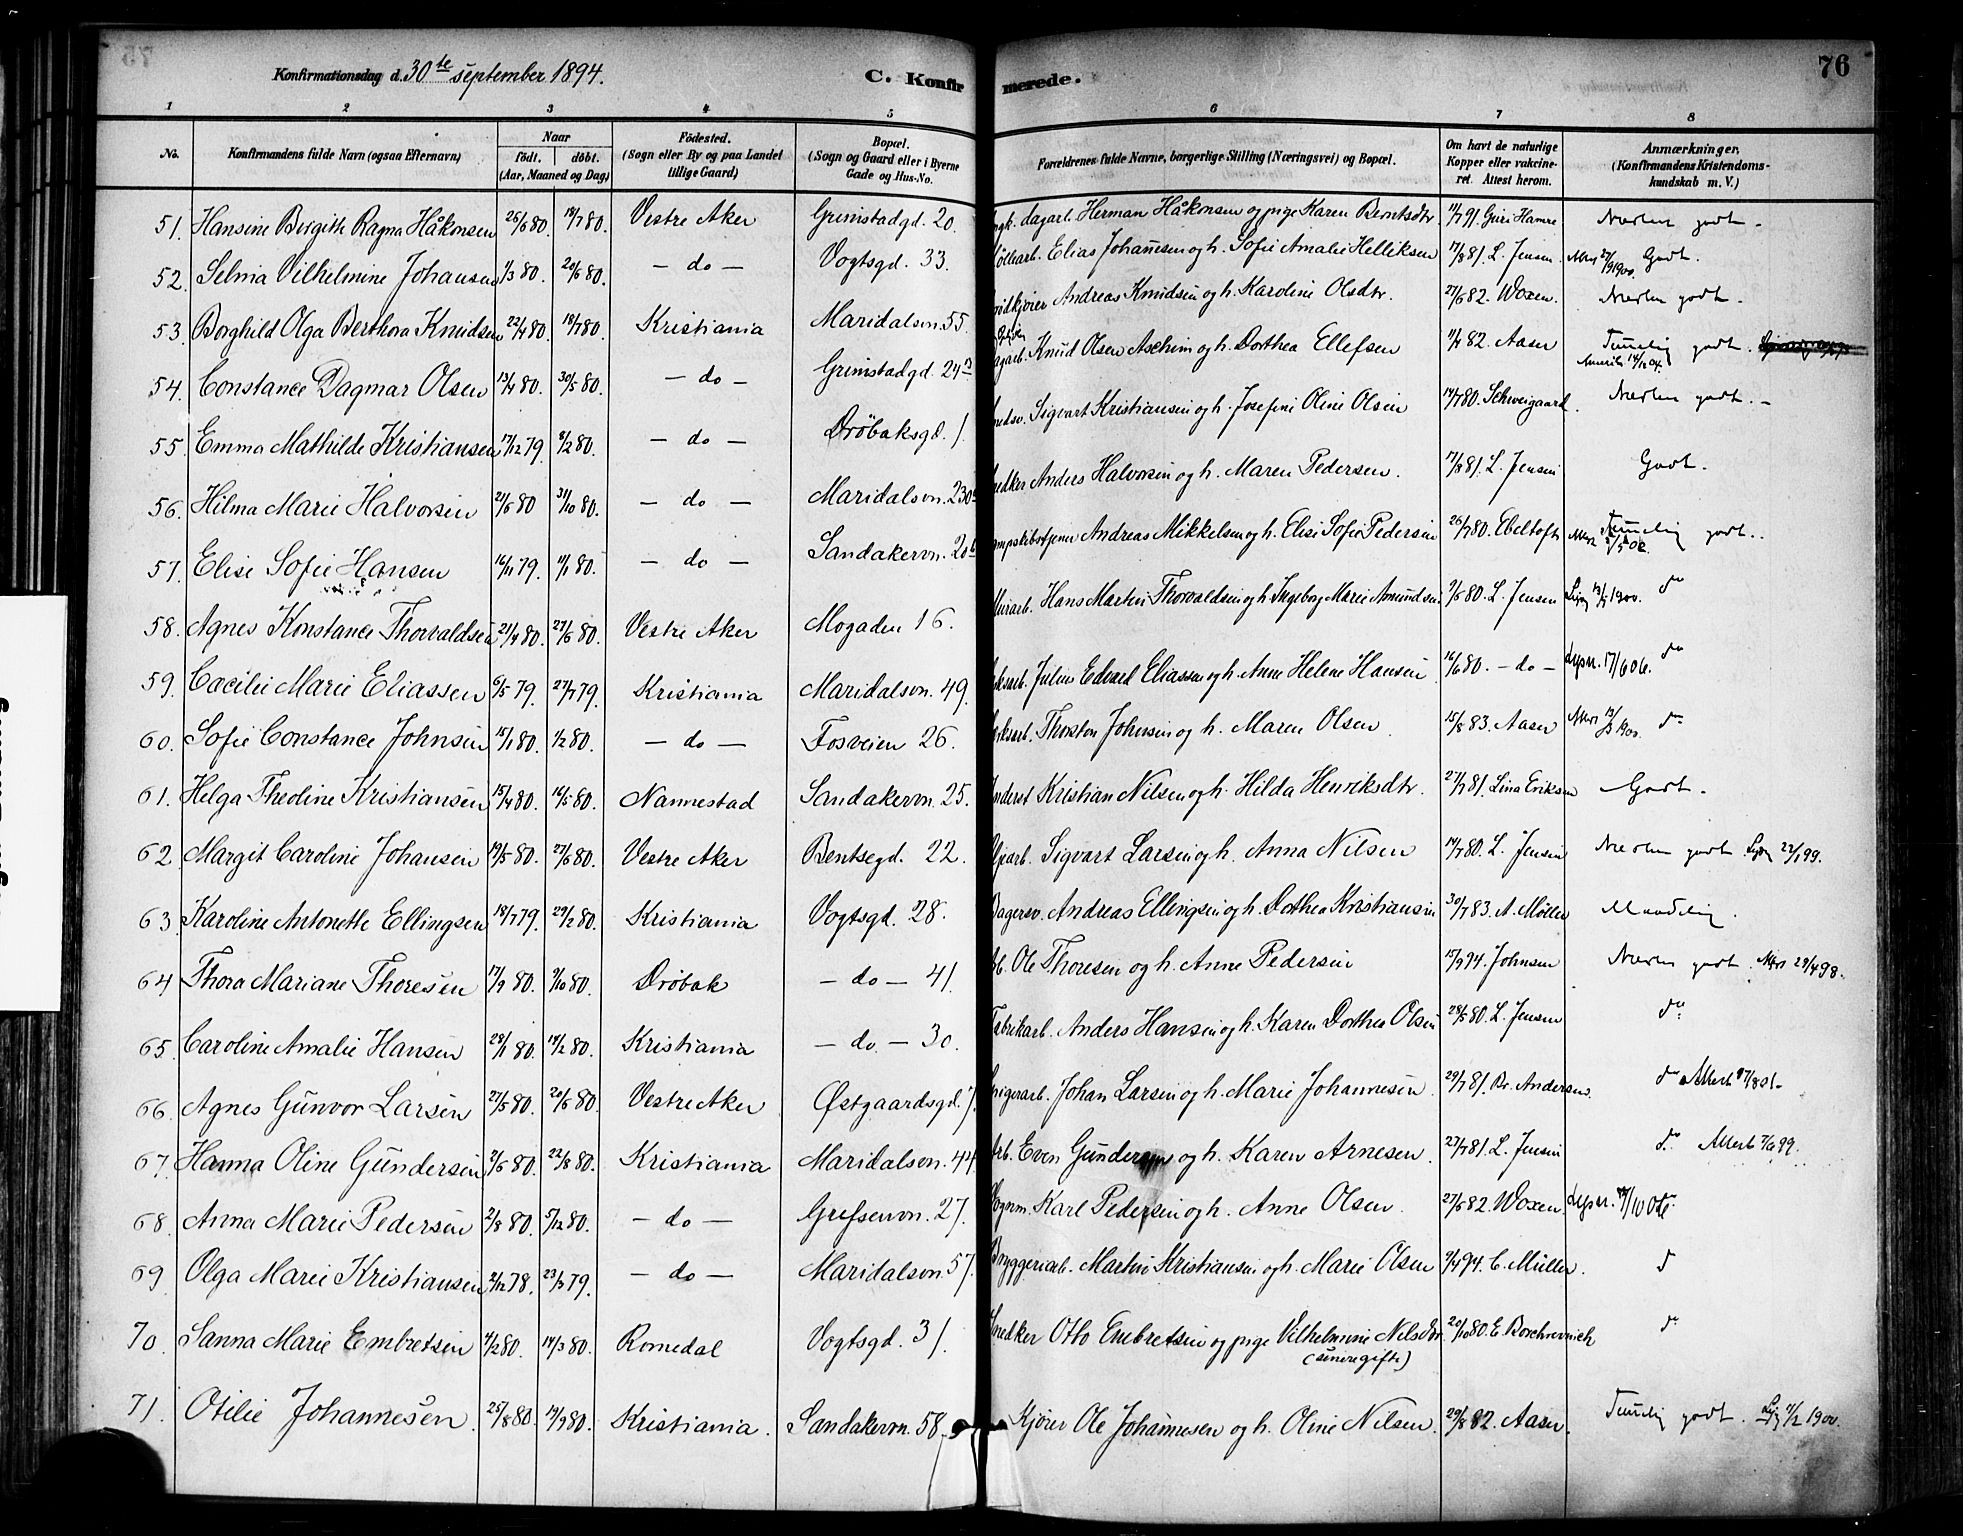 Konfirmationsdag d. 30te september 1894. C. Konfirmerede. 76
1 2 3 4 5 6 7 8
No. Konfirmandens fulde Navn (ogsaa Efternavn) Naar født. døbt. (Aar, Maaned og Dag) Fødested. (Sogn eller By og paa Landet tillige Gaard) Bopæl. (Sogn og Gaard eller i Byerne Gade og Hus-No. Forældrenes fulde Navne, borgerlige Stilling (Næringsvei) og Bopæl. Om havt de naturlige Kopper eller vakcineret. Attest herom. Anmærkninger, (Konfirmandens Kristendomskundskab m. V.)
51. Hansine Birgith Ragna Håkonsen 26/6 80. 18/7 80. Vestre Aker Grimstadgd. 20. dagarb. Herman Håkonsen og pige Karen Berntsdtr 11/7 91. Guri Hamre Næsten godt.
52. Selma Vilhelmine Johansen 1/3 80. 20/6 80. — do — Vogtsgd. 33. Elias Johannesen og h. Sofie Amalie Helliksen 17/8 81. L. Jensen. Godt.
53. Borghild Olga Berthora Knudsen 22/4 80. 18/7 80. Kristiania Maridalsvn. 55. Andreas Knudsen og h. Karoline Olsdtr. 27/6 82. Woxen. Næsten godt.
54. Constance Dagmar Olsen 13/4 80. 30/5 80. — do — Grimstadgd. 24 Knud Olsen Aschim og h. Dorthea Ellefsen 11/4 82. Aasen Temelig godt.
55. Emma Mathilde Kristiansen 17/12 79. 8/2 80. — do — Drøbaksgd. 1. Sigvart Kristiansen og h. Josefine Oline Olsen 14/7 80. Schweigaard. Næsten godt.
56. Hilma Marie Halvorsen 21/6 80 31/10 80. — do — Maridalsvn. 230 Anders Halvorsen og h. Maren Pedersen. 17/8 81. L. Jensen Godt.
57. Elise Sofie Hansen 16/11 79. 11/1 80. — do — Sandakervn. 20 Andreas Mikkelsen og h. Elise Sofie Pedersen 26/7 80. Ebeltoft Temelig godt.
58. Agnes Konstance Thorvaldsen 21/4 80. 27/6 80. Vestre Aker Mogaden 16. Hans Martin Thorvaldsen og h. Ingeborg Marie Amundsen. L. Jensen do
59. Cæcilie Marie Eliassen 6/5 79. 27/7 79. Kristiania Maridalsvn. 49. Julius Edvard Eliassen og h. Anne Helene Hansen 16/6 80. — do — 17/6 06. do
60. Sofie Constance Johnsen 15/1 80. 1/2 80. — do — Fosveien 26. Thorsten Johnsen og h. Maren Olsen 15/8 83. Aasen do
61. Helga Theoline Kristiansen 15/4 80. 16/5 80. Nannestad Sandakervn. 25. Kristian Nilsen og h. Hilda Henriksdtr. 27/7 81. Lina Eriksen Godt.
62. Margit Caroline Johansen 19/5 80. 27/6 80. Vestre Aker Bentsegd. 22. Sigvart Larsen og h. Anna Nilsen 14/7 80. L. Jensen Næsten godt 22/1 99.
63. Karoline Antonette Ellingsen 18/7 79. 29/2 80. Kristiania Vogtsgd. 28. Bagersv. Andreas Ellingsen og h. Dorthea Kristiansen 30/7 83. A. Møller Maadelig.
64. Thora Mariane Thoresen 17/9 80. 9/10 80. Drøbak — do — 41. Ole Thoresen og h. Anne Pedersen 15/9 94. Johnsen Næsten godt. 29/4 98.
65. Caroline Amalie Hansen 28/1 80. 14/2 80. Kristiania — do — 30. Fabrikarb. Anders Hansen og h. Karen Dorthea Olsen 28/5 80. L. Jensen do
66. Agnes Gunvor Larsen 27/5 80. 20/6 80. Vestre Aker Østgaardsgd. 7. Johan Larsen og h. Marie Johannesen 29/7 81. Br. Andersen. do
67. Hanna Oline Gundersen 21/6 80. 22/8 80. Kristiania Maridalsvn. 44 Arb. Even Gundersen og h. Karen Arnesen. 27/7 81. L. Jensen do 7/6 99.
68. Anna Marie Pedersen 2/8 80. 5/12 80. — do — Grefsenvn. 27. Vognm. Karl Pedersen og h. Anne Olsen. 27/6 82. Woxen.
69. Olga Marie Kristiansen 2/12 78. 23/3 79. — do — Maridalsvn. 57. Bryggeriarb. Martin Kristiansen og h. Marie Olsen C. Müller. do
70. Sanna Marie Embretsen 4/2 80. 14/3 80. Romedal Vogtsgd. 31. Snedker Otto Embretsen og pige Vilhelmine Nilsdtr (senere gifte) 20/10 80. do
71. Otilie Johannesen. 25/8 80. 19/9 80. Kristiania. Sandakervn. 58. Kjører Ole Johannesen og h. Oline Nilsen. 29/8 82. Aasen. Temelig godt. 11/2 1900.